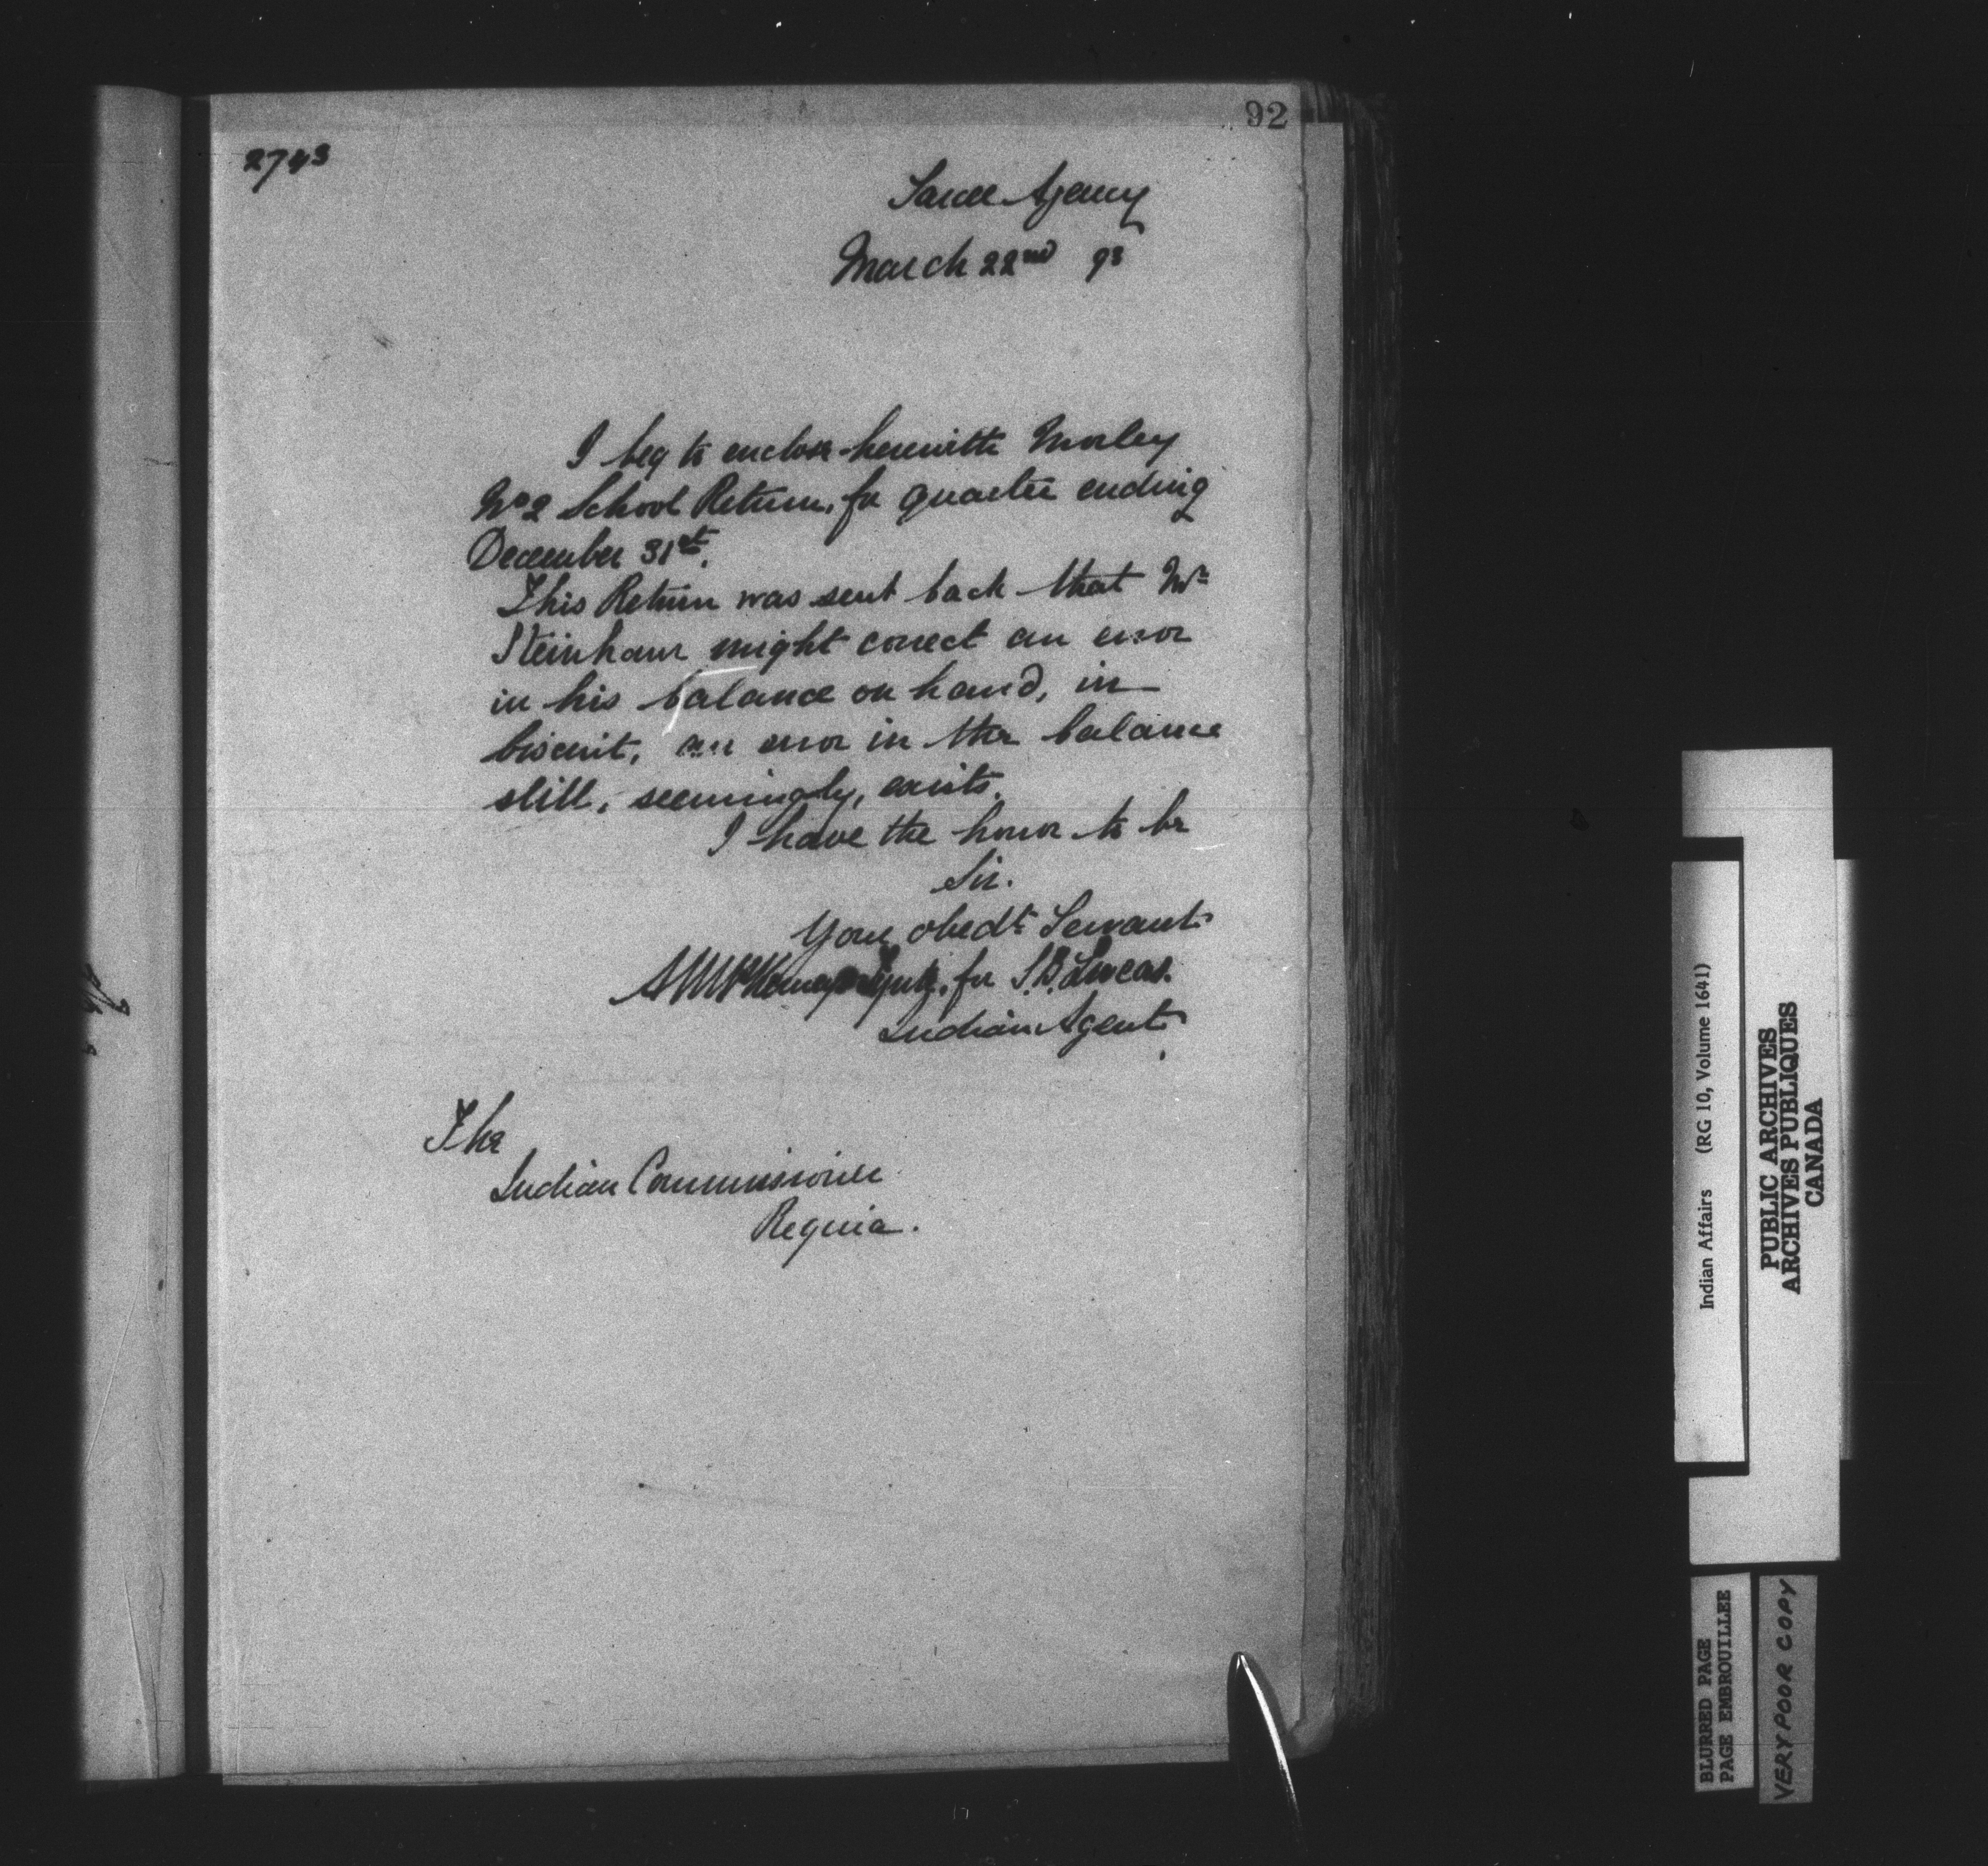 92
2743
Sarcee Agency
March 22nd 93
I beg to enclose herewith Morley
No 2 School Return, for quarter ending
December 31st.
This Return was sent back that Mr
Steinhaur might correct an error
in his balance on hand, in
biscuit, an error in the balance
still, seemingly, exists.
I have the honor to be
Sir.
Your obedt Servant
for S.B. Lucas.
Indian Agent
The
Indian Commissioner
Regina.
Indian Affairs (RG 10, Volume 1641)
PUBLIC ARCHIVES
ARCHIVES PUBLIQUES
CANADA
BLURRED PAGE
PAGE EMBROUILLEE
VERY POOR COPY